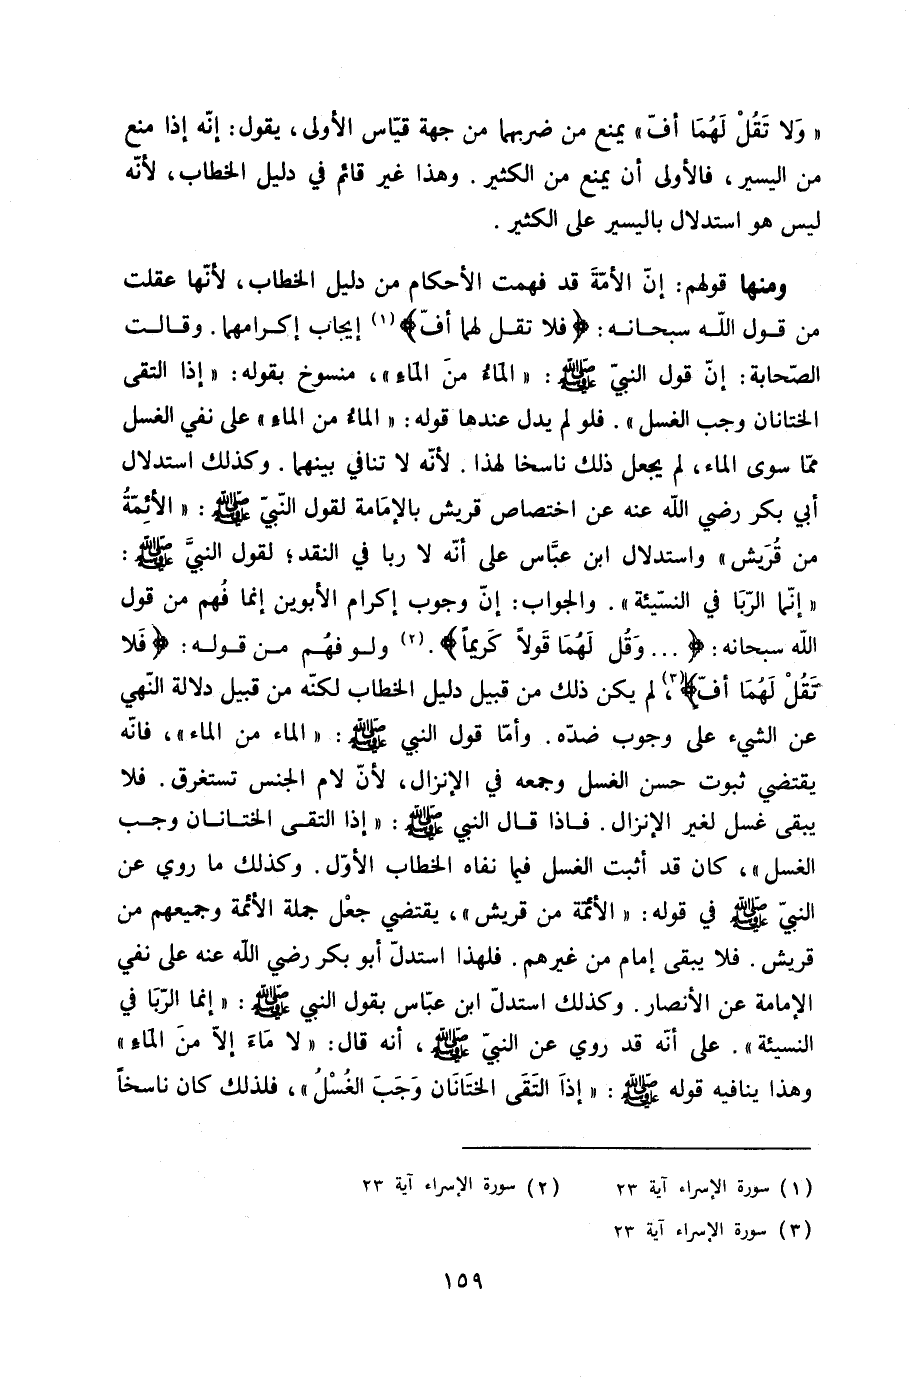 « وَلا تَقُلْ لَهُمَا أفّ » يمنع من ضربهما من جهة قيّاس الأولى ، يقول : إنّه إذا منع
من اليسير ، فالأولى أن يمنع من الكثير . وهذا غير قائم في دليل الخطاب ، لأنّه
ليس هو استدلال باليسير على الكثير .
ومنها قولهم : إنّ الأمّةَ قد فهمت الأحكام من دليل الخطاب ، لأنّها عقلت
من قول اللّه سبحانه : ﴿ فلا تقل لهما أفّ ﴾ (١) إيجاب إكرامهما . وقالت
الصّحابة : إنّ قول النبيّ ﷺ : « المَاءُ منَ المَاءِ » ، منسوخ بقوله : « إذا التقى
الختانان وجب الغسل » . فلو لم يدل عندها قوله : « الماءُ من الماءِ » على نفي الغسل
ممّا سوى الماء ، لم يجعل ذلك ناسخا لهذا . لأنّه لا تنافي بينهما . وكذلك استدلال
أبي بكر رضي اللّه عنه عن اختصاص قريش بالإمَامة لقول النّبيّ ﷺ : « الأئِمّةُ
من قُرَيش » واستدلال ابن عبَّاس على أنّه لا ربا في النقد ؛ لقول النبيَّ ﷺ :
« إنّما الرّبَا في النسّيئة » . والجواب : إنّ وجوب إكرام الأبوين إنما فُهم من قول
اللّه سبحانه : ﴿ ... وَقُل لَهُمَا قَولاً كَريماً ﴾ . (٢) ولو فهُم من قوله : ﴿ فَلا
تَقُلْ لَهُمَا أفّ ﴾ (٣) ، لم يكن ذلك من قبيل دليل الخطاب لكنّه من قبيل دلالة النّهي
عن الشيء على وجوب ضدّه . وأمّا قول النبي ﷺ : « الماء من الماء » ، فانّه
يقتضي ثبوت حسن الغسل وجمعه في الإنزال ، لأنّ لام الجنس تستغرق . فلا
يبقى غسل لغير الإنزال . فاذا قال النبي ﷺ : « إذا التقى الختانان وجب
الغسل » ، كان قد أثبت الغسل فيما نفاه الخطاب الأوّل . وكذلك ما روي عن
النبيّ ﷺ في قوله : « الأئمّة من قريش » ، يقتضي جعْل جملة الأئمة وجميعهم من
قريش . فلا يبقى إمام من غيرهم . فلهذا استدلّ أبو بكر رضي اللّه عنه على نفي
الإمامة عن الأنصار . وكذلك استدلّ ابن عبّاس بقول النبي ﷺ : « إنما الرّبَا في
النسيئة » . على أنّه قد روي عن النبيّ ﷺ ، أنه قال : « لا مَاءَ إلاّ منَ المَاءِ »
وهذا ينافيه قوله ﷺ : « إذاَ التَقَى الختَانَان وَجَبَ الغُسْلُ » ، فلذلك كان ناسخاً
(١) سورة الإسراء آية ٢٣ (٢) سورة الإسراء آية ٢٣
(٣) سورة الإسراء آية ٢٣
١٥٩